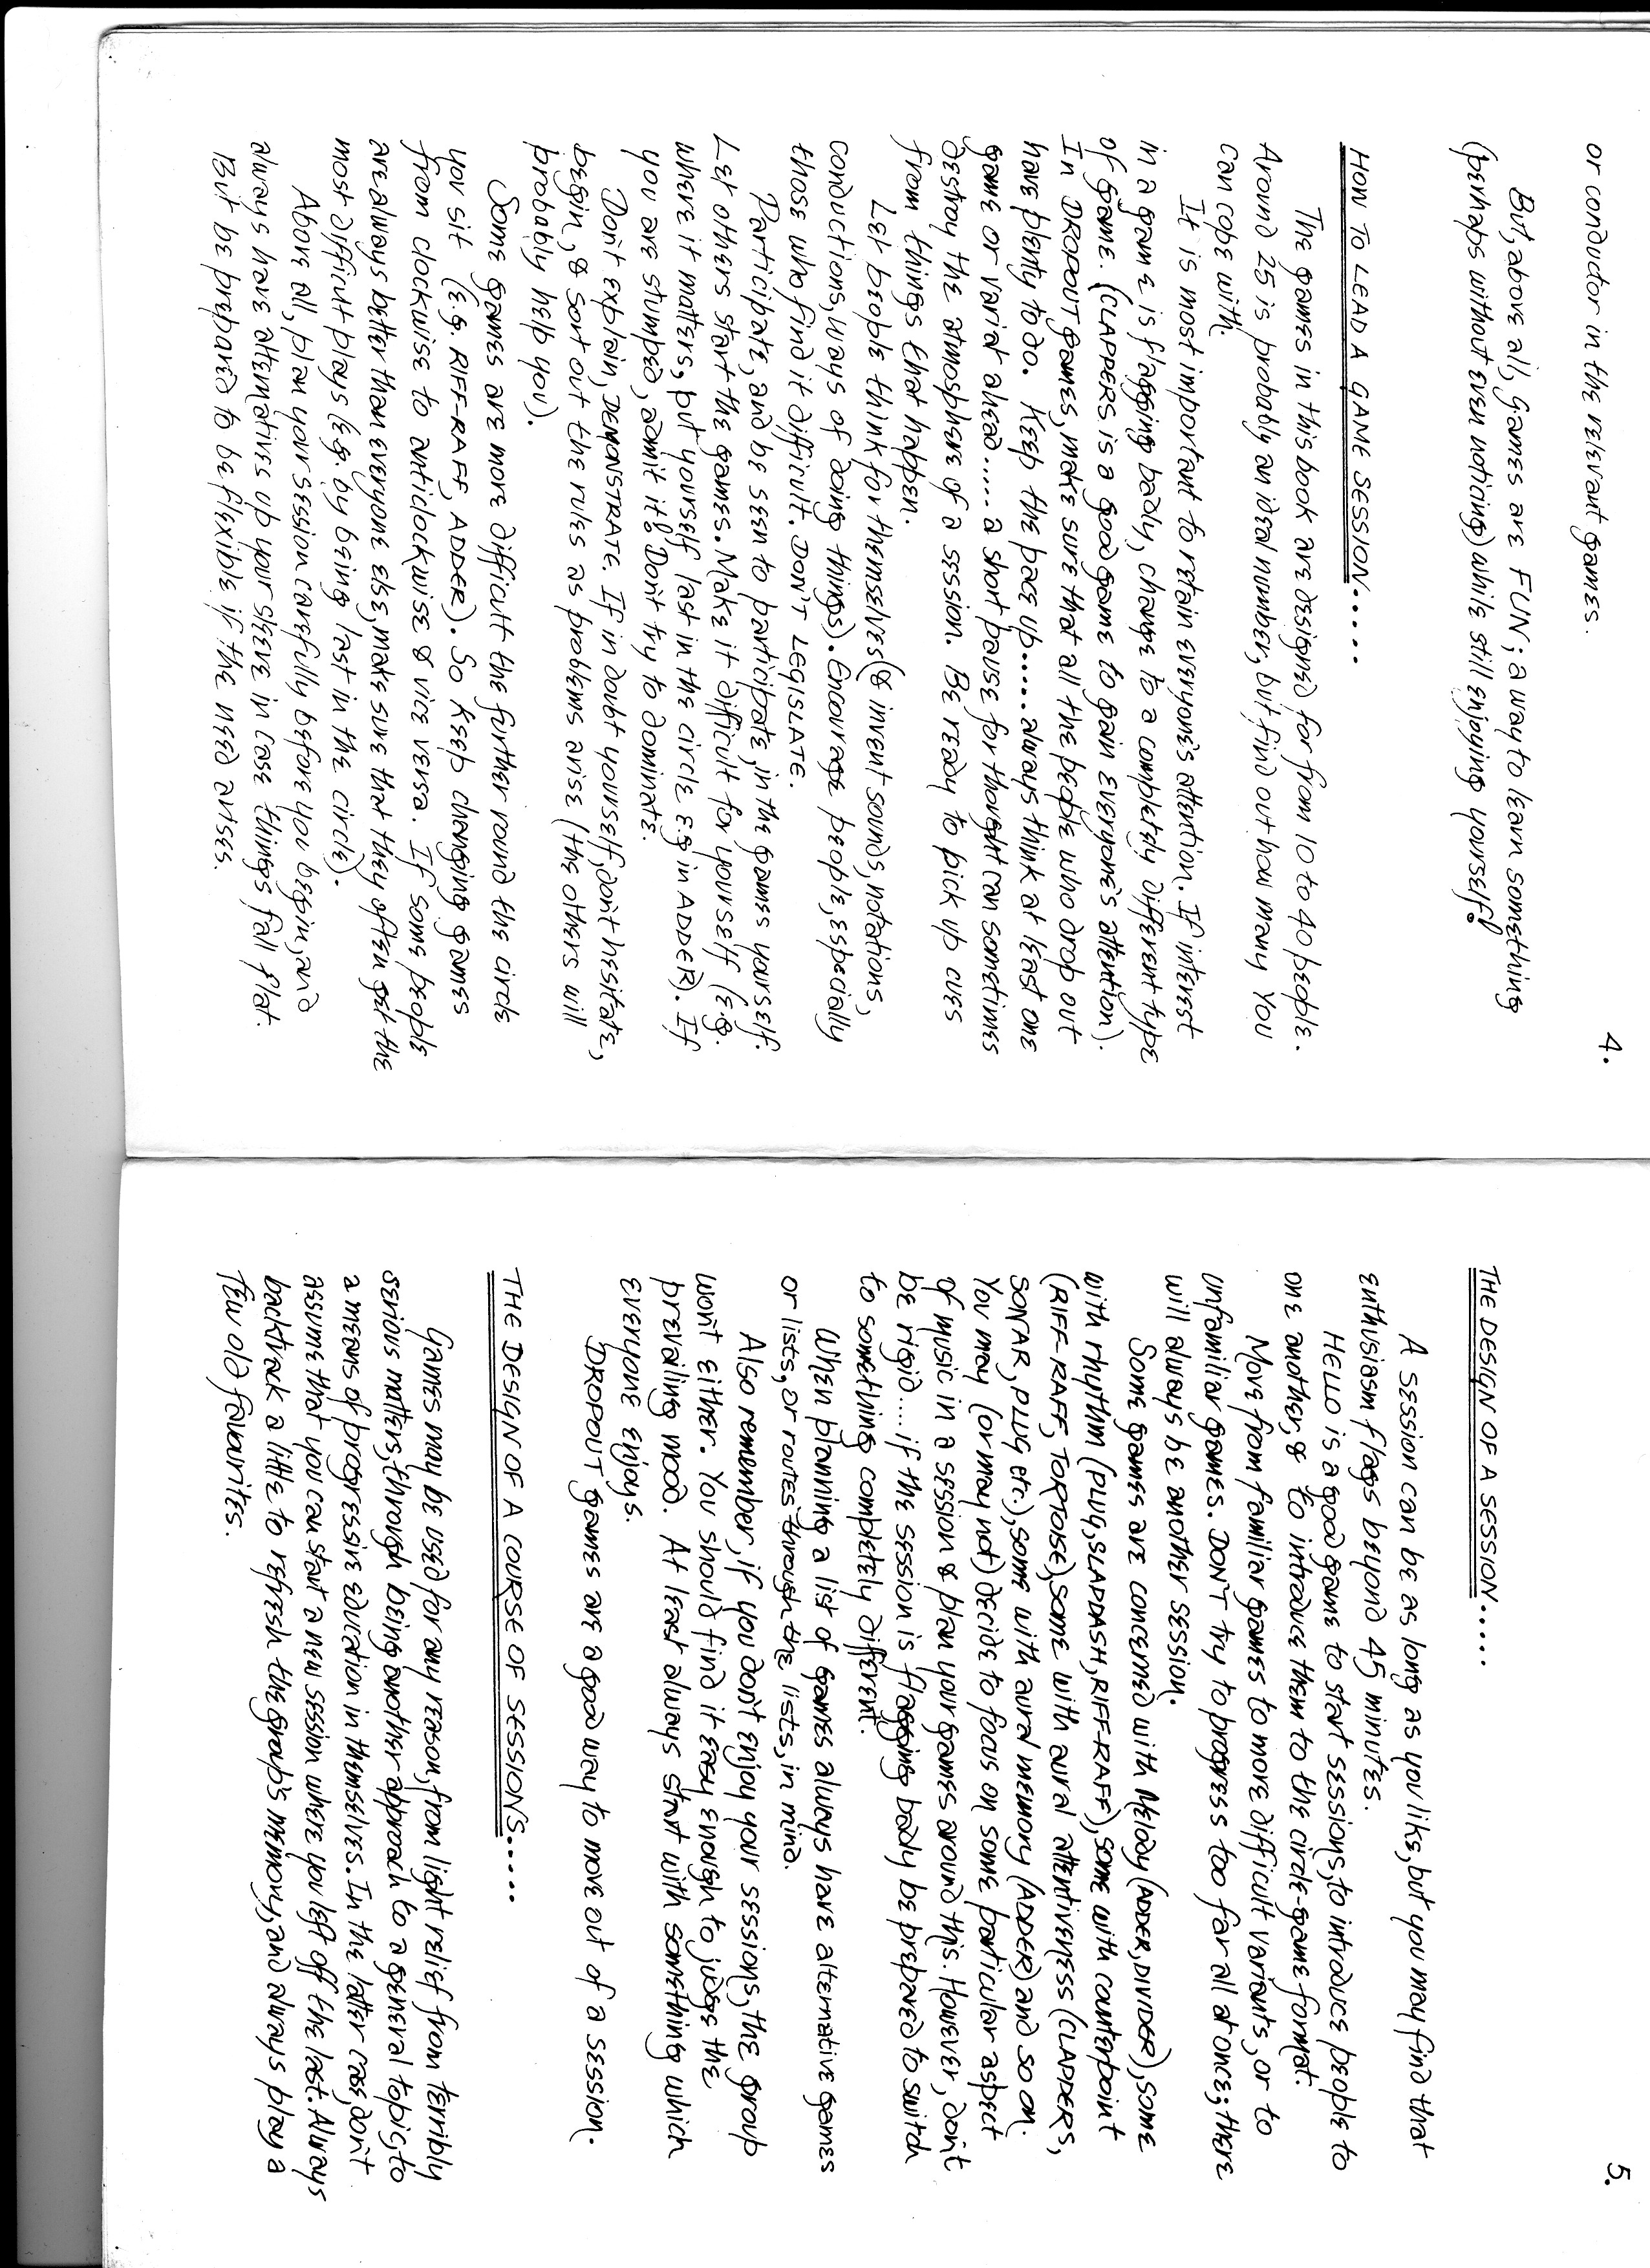 4.
or conductor in the relevant games.
But, above all, games are FUN; a way to learn something
(perhaps without even noticing) while still enjoying yourself!
HOW TO LEAD A GAME SESSION.....
The games in this book are designed for from 10 to 40 people.
Around 25 is probably an ideal number, but find out how many you
can cope with.
It is most important to retain everyone's attention. If interest
in a game is flagging badly, change to a completely different type
of game. (CLAPPERS is a good game to gain everyone's attention).
In DROPOUT games, make sure that all the people who drop out
have plenty to do. Keep the pace up..... always think at least one
game or variat ahead..... a short pause for thought can sometimes
destroy the atmosphere of a session. Be ready to pick up cues
from things that happen.
Let people think for themselves (& invent sounds, notations,
conductions, ways of doing things). Encourage people, especially
those who find it difficult. DON'T LEGISLATE.
Participate, and be seen to participate, in the games yourself.
Let others start the games. Make it difficult for yourself (e.g.
where it matters, put yourself last in the circle e.g in ADDER). If
you are stumped, admit it! Don't try to dominate.
Don't explain, DEMONSTRATE. If in doubt yourself, don't hesitate,
begin, & sort out the rules as problems arise (the others will
probably help you).
Some games are more difficult the further round the circle
you sit (e.g. RIFF-RAFF, ADDER). So keep changing games
from clockwise to anticlockwise & vice versa. If some people
are always better than everyone else, make sure that they often get the
most difficult plays (e.g. by being last in the circle).
Above all, plan your session carefully before you begin, and
always have alternatives up your sleeve in case things fall flat.
But be prepared to be flexible if the need arises.
5.
THE DESIGN OF A SESSION.....
A session can be as long as you like, but you may find that
enthusiasm flags beyond 45 minutes.
HELLO is a good game to start sessions, to introduce people to
one another, & to introduce them to the circle-game format.
Move from familiar games to more difficult variants, or to
unfamiliar games. DON'T try to progress too far all at once; there
will always be another session.
Some games are concerned with melody (ADDER, DIVIDER), some
with rhythm (PLUG, SLAPDASH, RIFF-RAFF), some with counterpoint
(RIFF-RAFF, TORTOISE), some with aural attentiveness (CLAPPERS,
SONAR, PLUG etc.), some with aural memory (ADDER) and so on.
You may (or may not) decide to focus on some particular aspect
of music in a session & plan your games around this. However, don't
be rigid..... if the session is flagging badly be prepared to switch
to something completely different.
When planning a list of games always have alternative games
or lists, or routes through the lists, in mind.
Also remember, if you don't enjoy your sessions, the group
won't either. You should find it easy enough to judge the
prevailing mood. At least always start with something which
everyone enjoys.
DROPOUT games are a good way to move out of a session.
THE DESIGN OF A COURSE OF SESSIONS......
Games may be used for any reason, from light relief from terribly
serious matters, through being another approach to a general topic, to
a means of progressive education in themselves. In the latter case, don't
assume that you can start a new session where you left off the last. Always
backtrack a little to refresh the group's memory, and always play a
few old favourites.